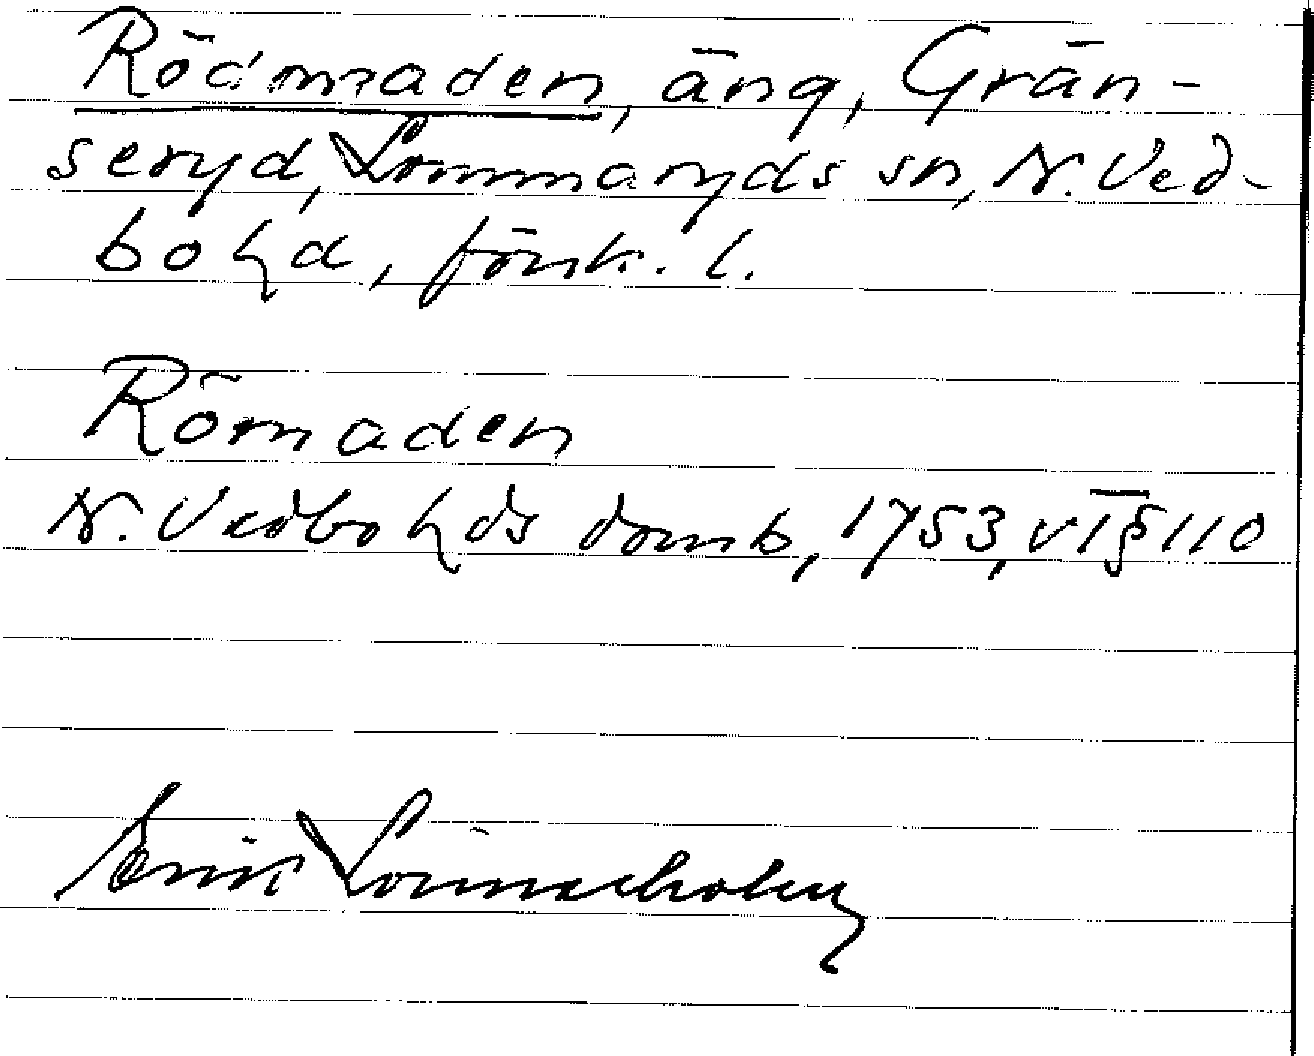 Rödmaden, äng, Grän-
seryd, Lommaryds sn, N. Ved-
bo hd, försk. l.
Römaden
N. Vedbo hds domb, 1753, v I § 110
Erik Lönnerholm